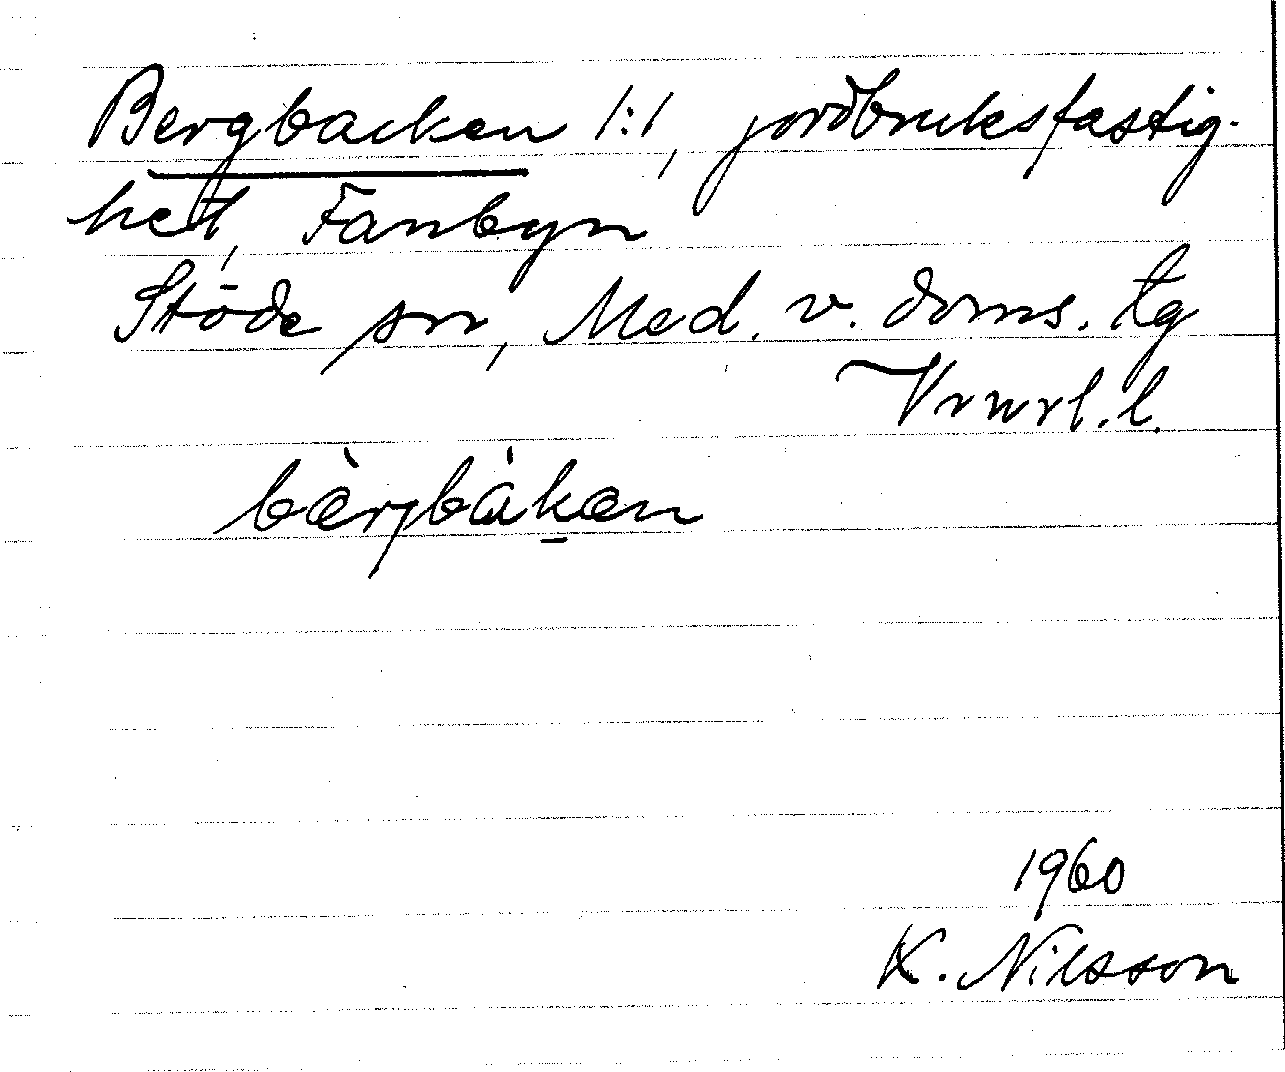 Bergbacken 1:1, jordbruksfastig-
het, Fanbyn
Stöde sn, Med. v. doms. tg
Vrnrl. l.
bèrgbàkæn
1960
K. Nilsson